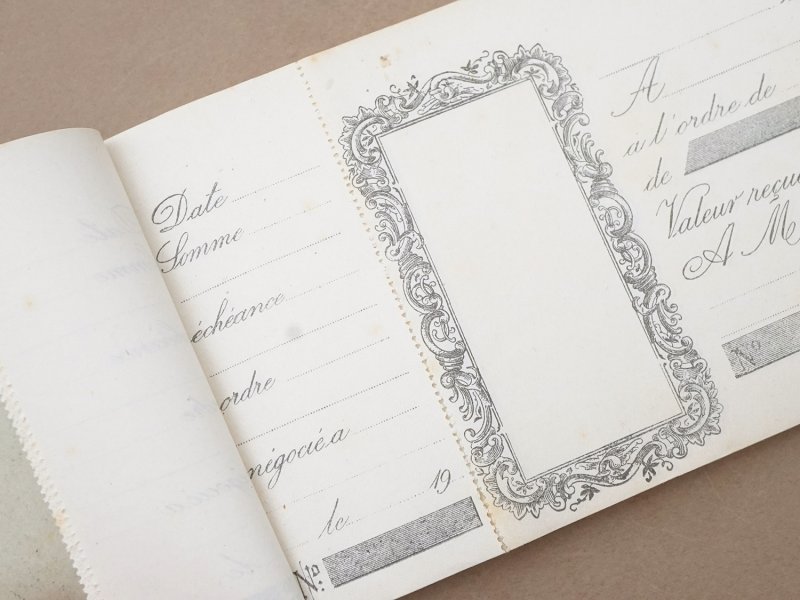 Date
Somme
échéance
ordre
négocié a
le 19
Nº
A
a l'ordre de
de
Valeur reçue
A M
Nº